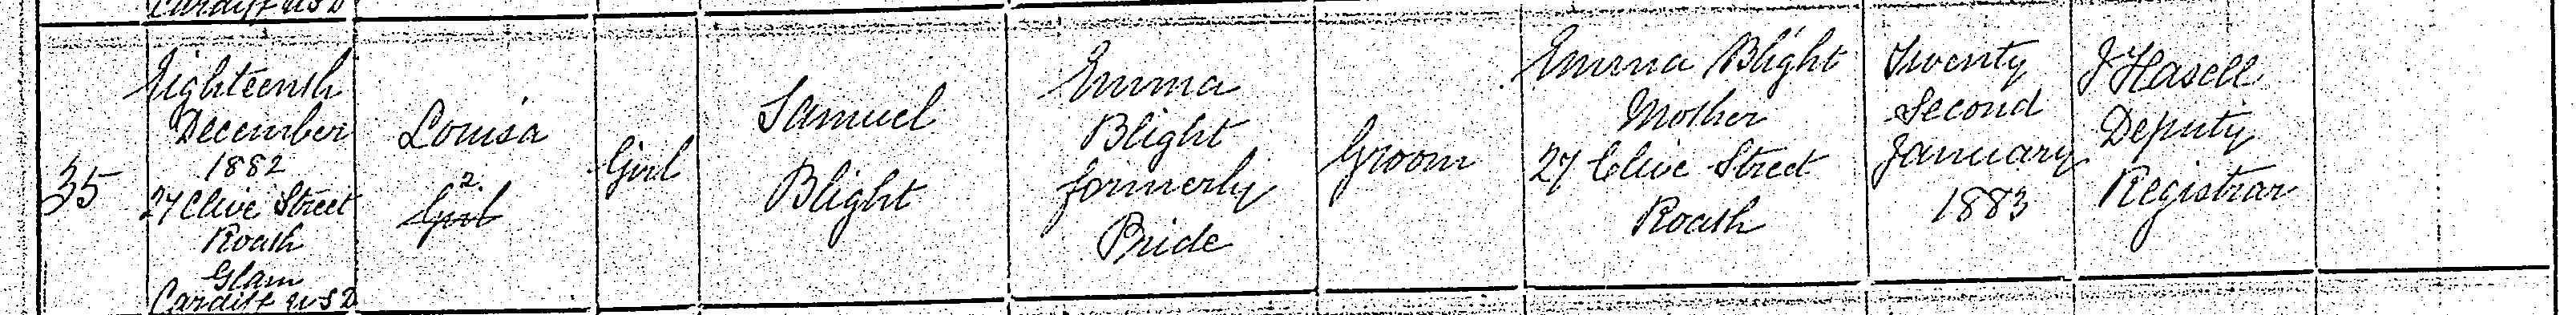 Cardiff USD
35
Eighteenth
December
1882
27 Clive Street
Roath
Glam
Cardiff USD
Louisa
2
Girl
Girl
Samuel
Blight
Emma
Blight
formerly
Pride
Groom
Emma Blight
Mother
27 Clive Street
Roath
Twenty
Second
January
1883
J Hasell
Deputy
Registrar